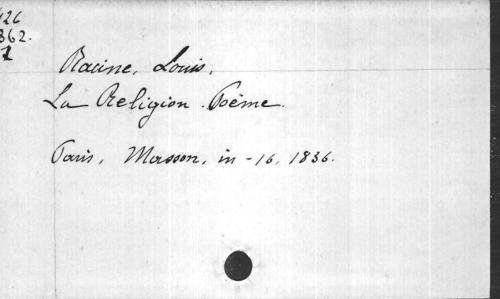 426
362.
1
Racine, Louis,
La Religion. Poème.
Paris, Masson, in-16, 1836.